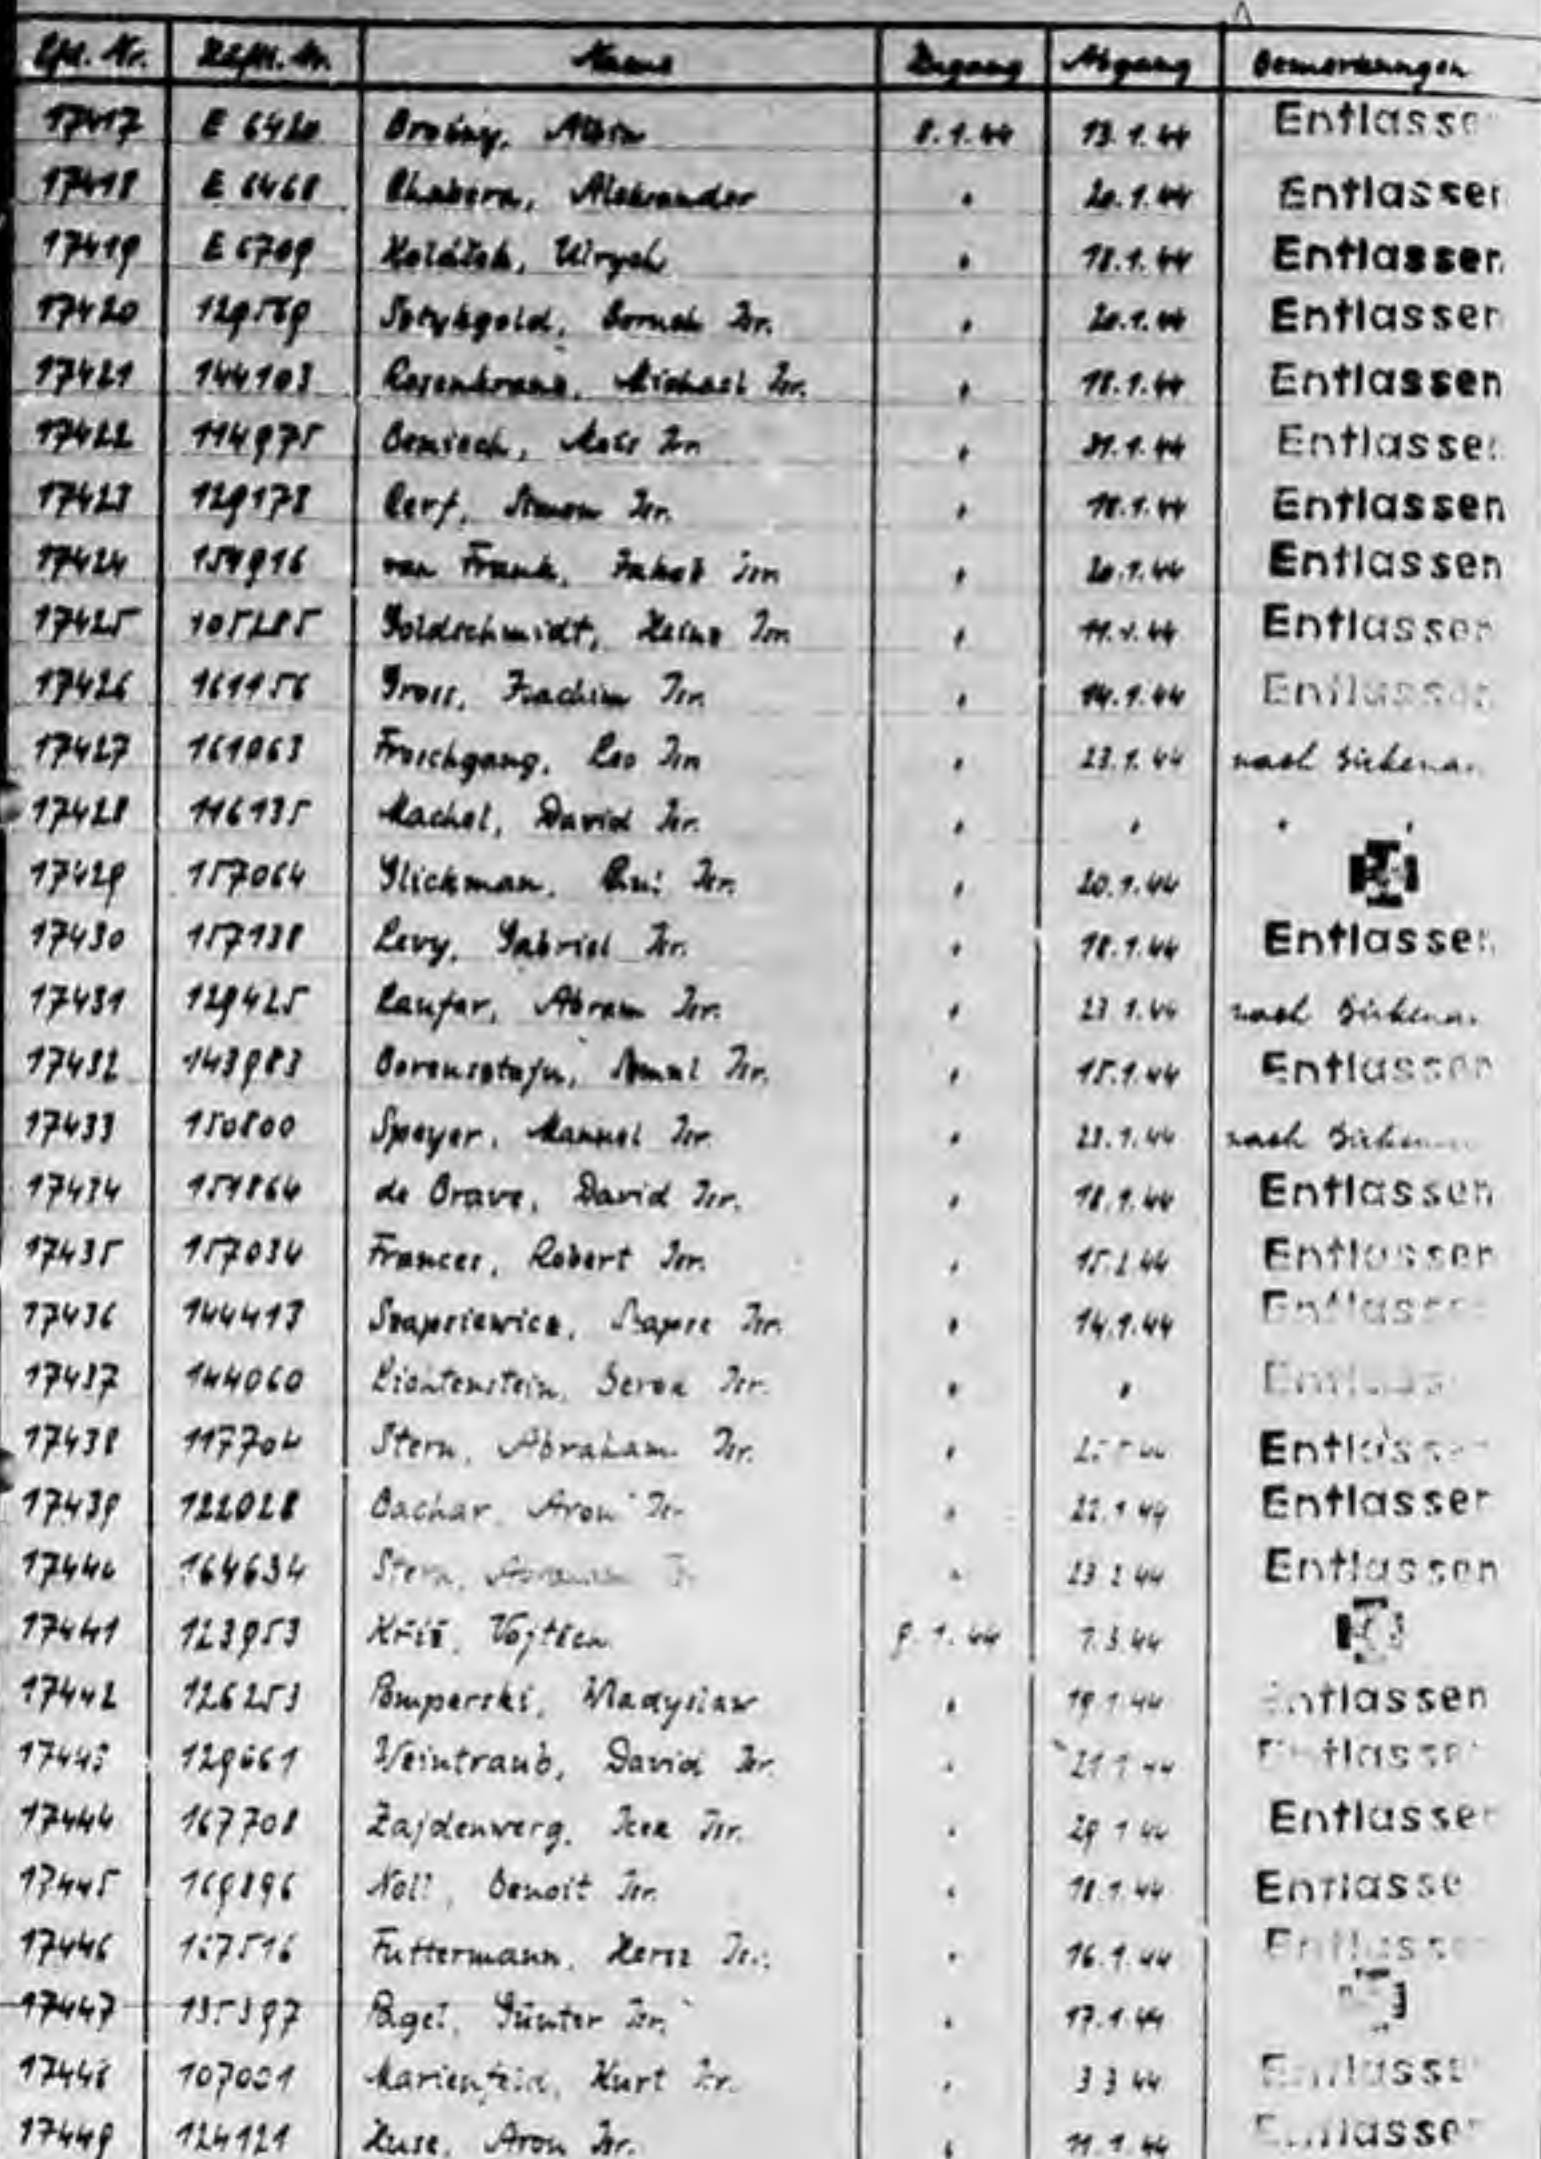 Lfd. Nr. Häftl. Nr. Name Zugang Abgang Bemerkungen
17417 E 6420 Albin 8.1.44 13.1.44 Entlasse
17418 E 6468 Chabera, Aleksander " 20.1.44 Entlassen
17419 E 6709 Koláček, Ulrych " 18.1.44 Entlassen
17420 129569 Boruch Isr. " 20.1.44 Entlassen
17421 144103 Rosenkranz, Michael Isr. " 18.1.44 Entlassen
17422 114975 Isr. " 31.1.44 Entlassen
17423 129178 Cerf, Simon Isr. " 18.1.44 Entlassen
17424 van Frank, Jakob Isr. " 20.1.44 Entlassen
17425 105285 Goldschmidt, Heinz Isr. " 11.1.44 Entlassen
17426 161156 Gross, Joachim Isr. " 14.1.44 Entlassen
17427 161063 Froschgang, Leo Isr. " 23.1.44 nach Birkenau
17428 116135 Machol, David Isr. " " " "
17429 157064 Glickman, Isr. " 20.1.44
17430 157138 Levy, Gabriel Isr. " 18.1.44 Entlassen
17431 129425 Laufer, Abram Isr. " 23.1.44 nach Birkenau
17432 143983 Borensztajn, Isr. " 15.1.44 Entlassen
17433 150800 Speyer, Manuel Isr. " 23.1.44 nach Birkenau
17434 151864 de Brave, David Isr. " 18.1.44 Entlassen
17435 157034 Frances, Robert Isr. " 15.2.44 Entlassen
17436 144413 Szapsiewicz, Szapse Isr. " 14.1.44 Entlassen
17437 144060 Lichtenstein, Isr. " " Entlass
17438 117704 Stern, Abraham Isr. " Entlassen
17439 122028 Bachar, Aron Isr. " 22.1.44 Entlassen
17440 164634 Stern, " 23.2.44 Entlassen
17441 123953 Kříž, Vojtěch 9.1.44 7.3.44
17442 126253 Pomperski, Wladyslaw " 19.1.44 Entlassen
17443 129661 Weintraub, David Isr. " 21.1.44 Entlassen
17444 167708 Zajdenwerg, Icek Isr. " 29.1.44 Entlassen
17445 169896 Noll, Benoit Isr. " 18.1.44 Entlasse
17446 Futtermann, Hersz Isr. " 16.1.44 Entlassen
17447 135397 Pagel, Günter Isr. " 17.1.44
17448 Marienfeld, Kurt Isr. " 3.3.44 Entlasse
17449 124121 Huse, Aron Isr. " 11.1.44 Entlassen